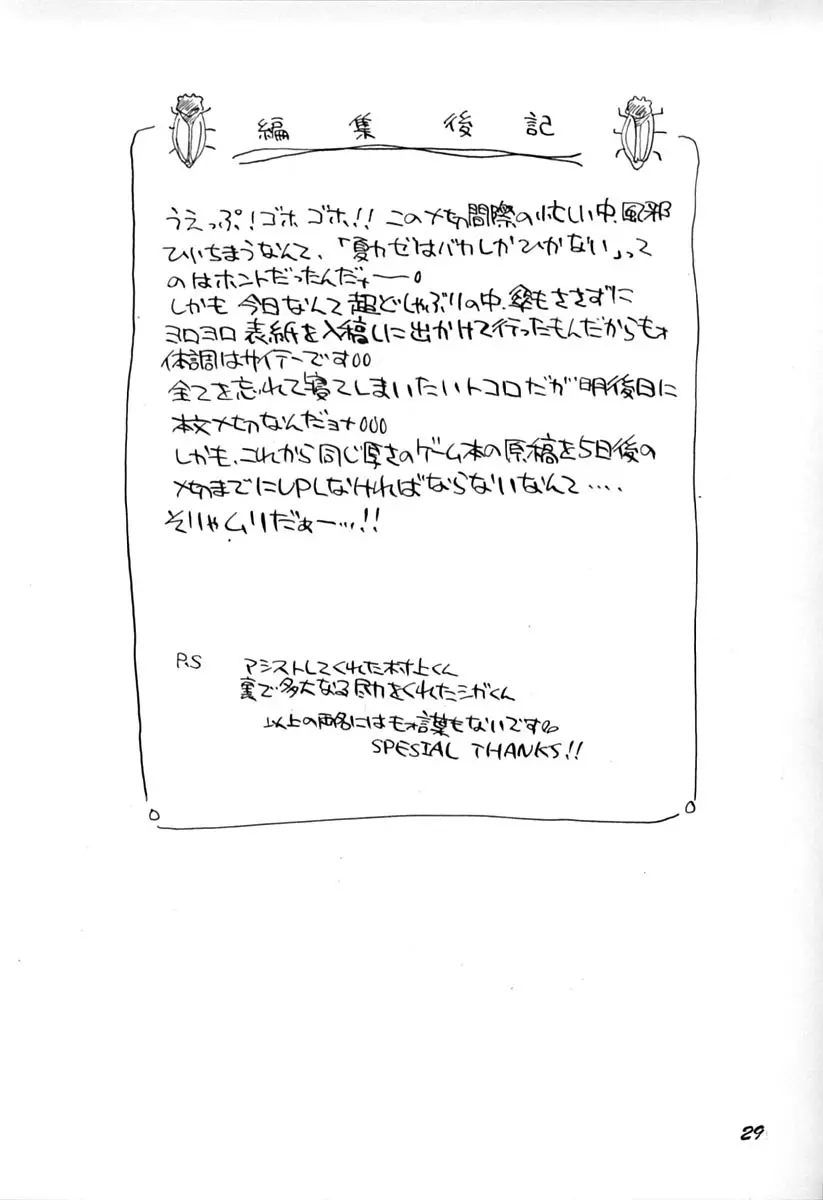 編集後記
うえっぷ!ゴホ ゴホ!! この〆切間際の忙しい中、風邪
ひいちまうなんて、「夏カゼはバカしかひかない」って
のはホントだったんだナー。
しかも 今日なんて超どしゃぶりの中、傘もささずに
ヨロヨロ 表紙を入稿しに出かけて行ったもんだからもォ
体調はサイテーです。。
全てを忘れて寝てしまいたいトコロだが明後日に
本文〆切なんだョナ。。。
しかも、これから同じ厚さのゲーム本の原稿を5日後の
〆切までにUPしなければならないなんて‥‥
そりゃムリだぁー…!!
P.S アシストしてくれた村上くん
裏で多大なる尽力をくれたシガくん
以上の両名にはもォ言葉もないです。
SPESIAL THANKS!!
29